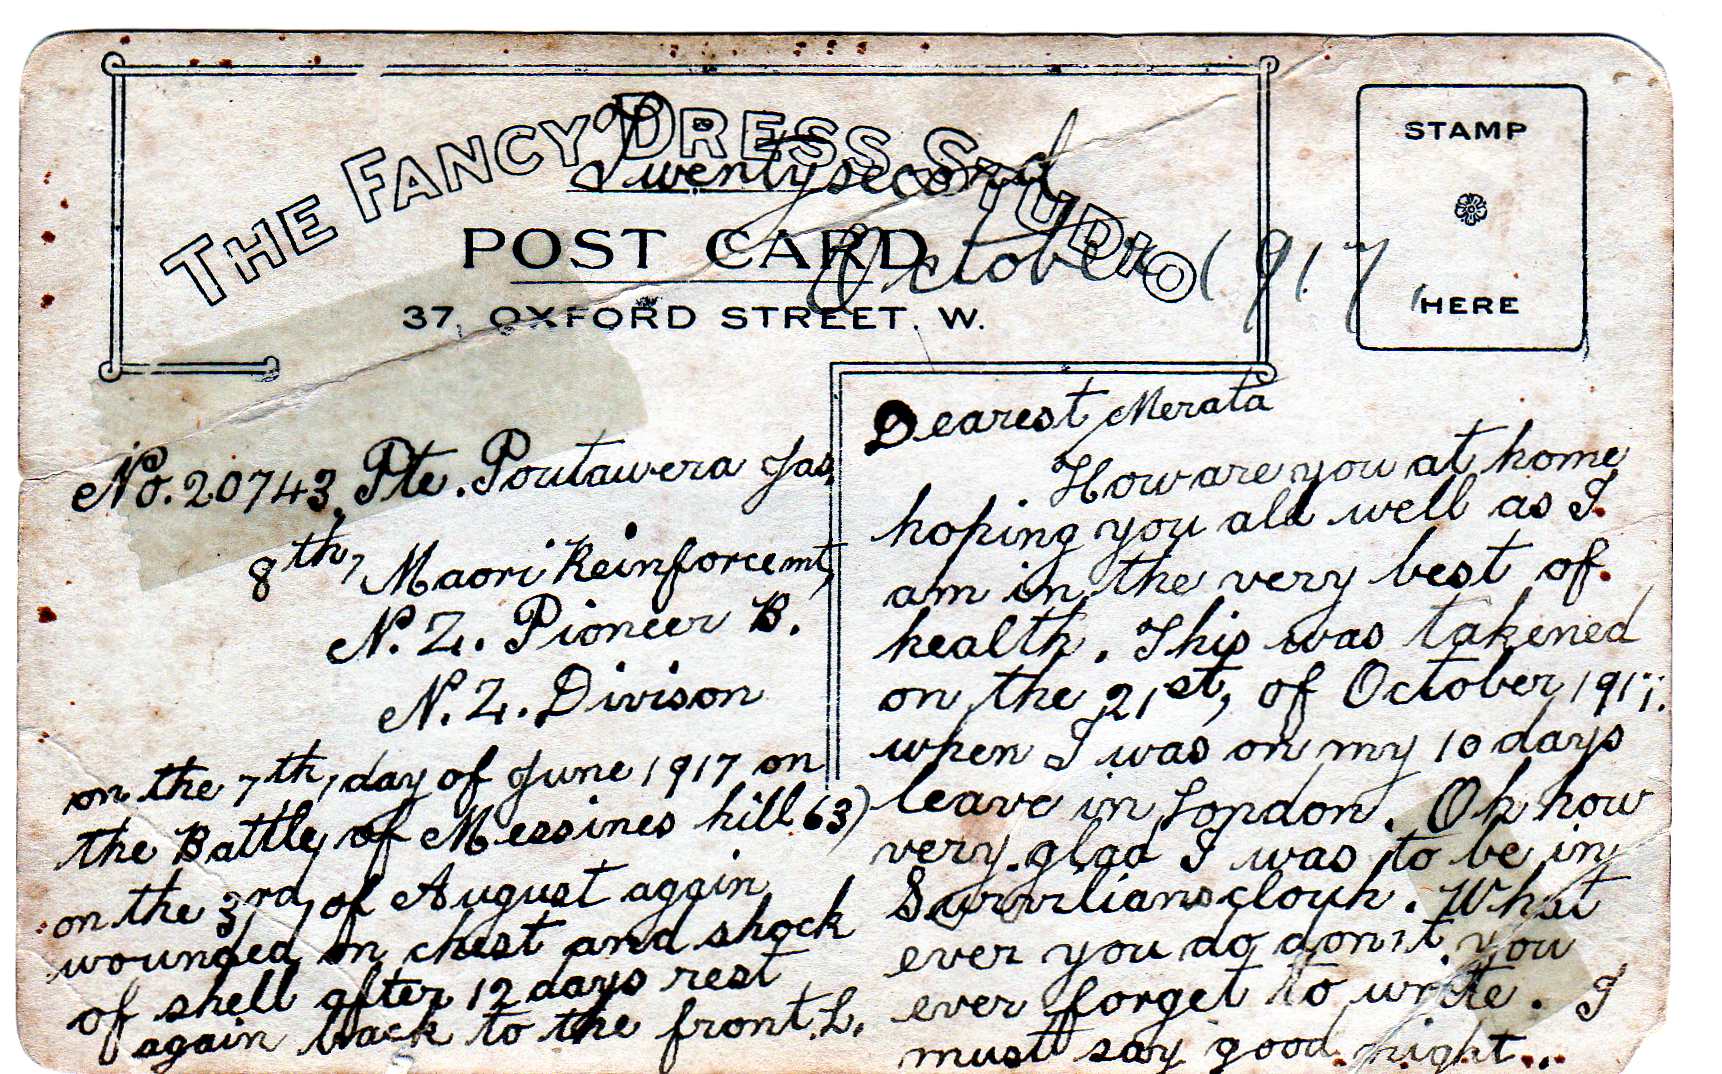 THE FANCY DRESS STUDIO
Twenty second
POST CARD
October 1917
37, OXFORD STREET. W.
STAMP
HERE
No. 20743. Pte. Poutawera Jas,
8th, Maori Reinforcemt,
N. Z. Pioneer B.
N. Z. Divison
on the 7th, day of June 1917 on
the Battle, of Messines hill 63)
on the 3rd, of August again
wounded in chest and shock
of shell after 12 days rest
again back to the front. L.
Dearest Merata
How are you at home
hoping you all well as I.
am in the very best of.
health. This was takened
on the 21st, of October 1917.
when I was on my 10 days
leave in London. Oh how
very glad I was to be in
clouh. What
ever you do don't you
ever forget to write. I
must say good night...